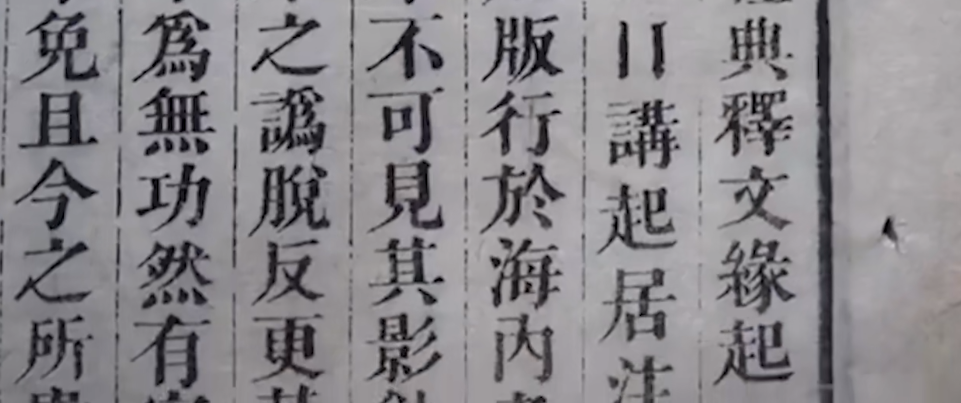 典釋文緣起
日講起居注
版行於海内
不可見其影
之譌脫反更
為無功然有
免且今之所